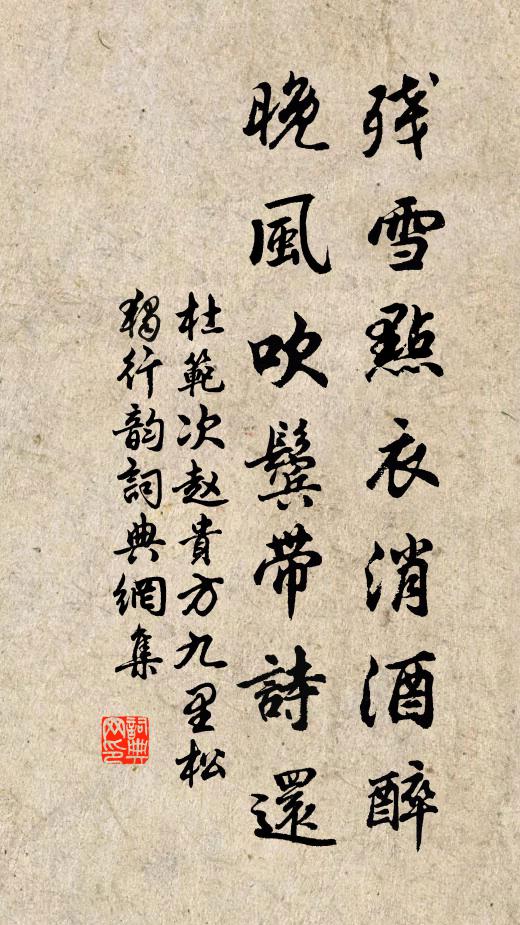 残雪點衣消酒醉
晚風吹鬓帶詩還
杜範次赵貴方九里松
獨行韵詞典網集
詞典
网印